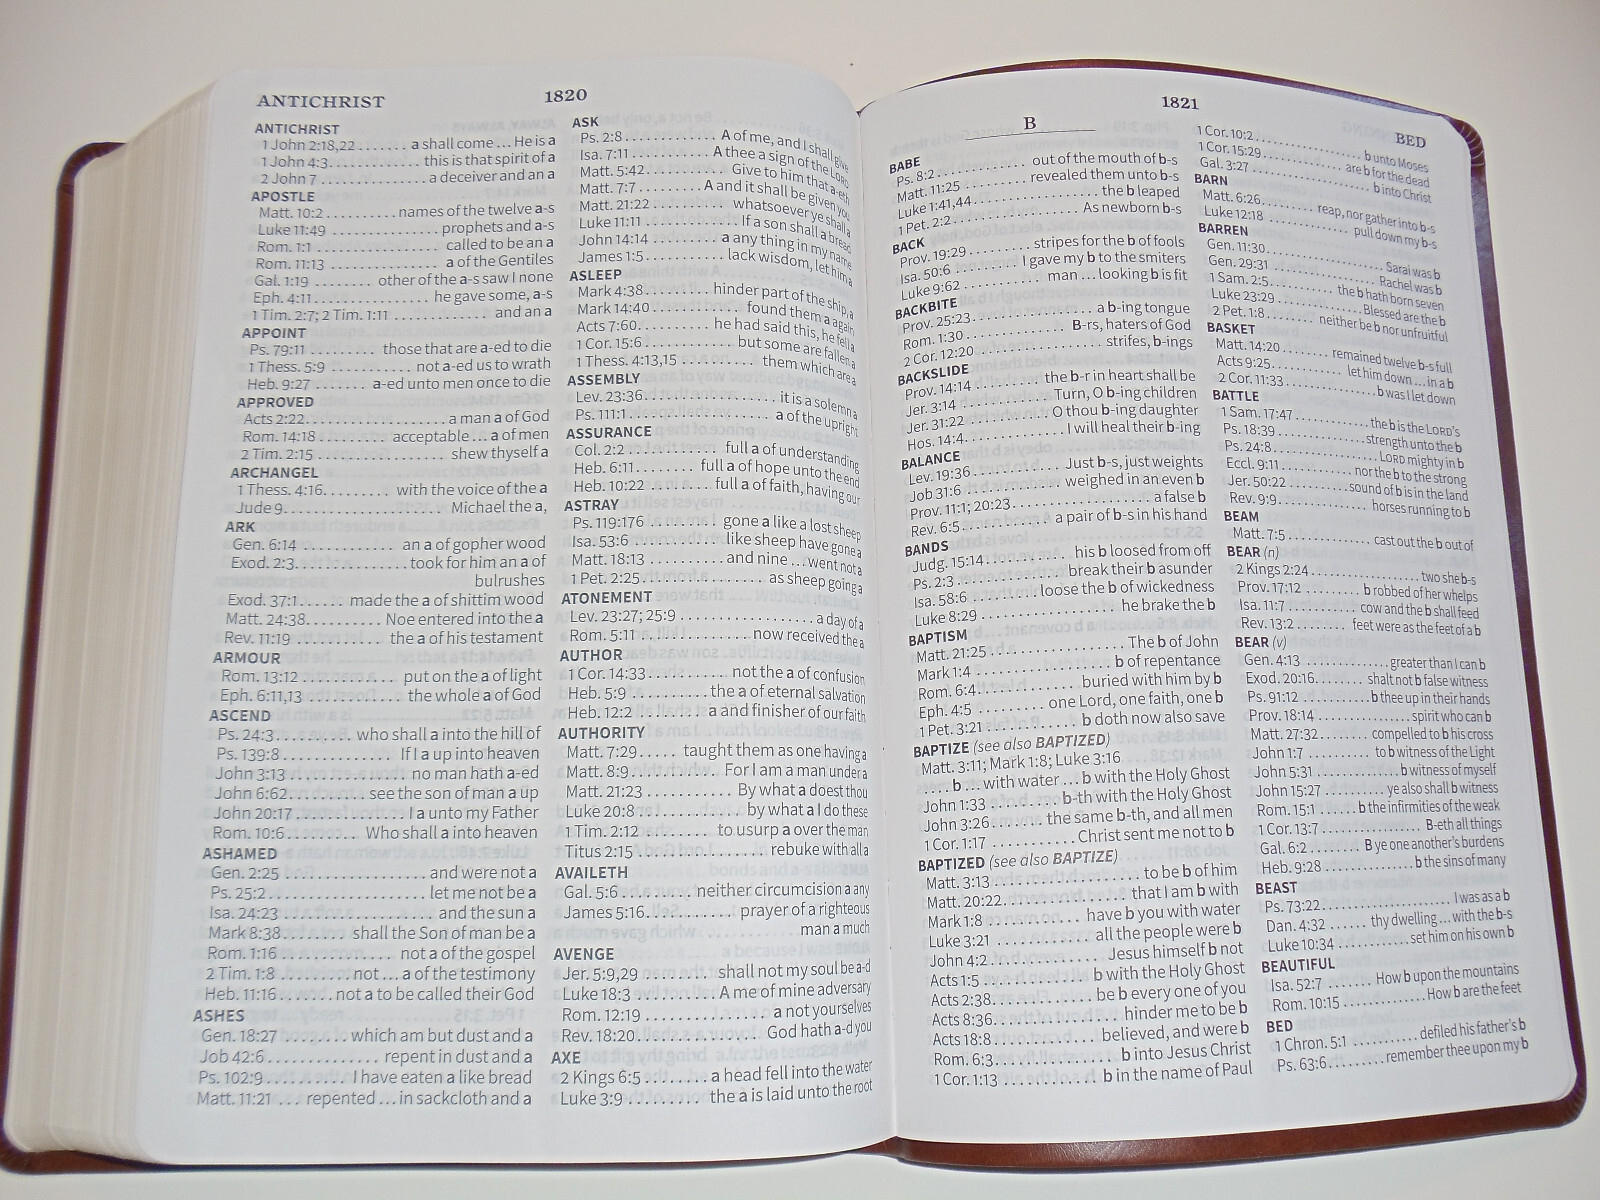 ANTICHRIST
1820
ANTICHRIST
1 John 2:18,22 ....... a shall come ... He is a
1 John 4:3 ............ this is that spirit of a
2 John 7 .............. a deceiver and an a
APOSTLE
Matt. 10:2 .......... names of the twelve a-s
Luke 11:49 .............. prophets and a-s
Rom. 1:1 ................ called to be an a
Rom. 11:13 ............... a of the Gentiles
Gal. 1:19 ........ other of the a-s saw I none
Eph. 4:11 ............... he gave some, a-s
1 Tim. 2:7; 2 Tim. 1:11 ............. and an a
APPOINT
Ps. 79:11 .......... those that are a-ed to die
1 Thess. 5:9 ............. not a-ed us to wrath
Heb. 9:27 ........ a-ed unto men once to die
APPROVED
Acts 2:22 ..................... a man a of God
Rom. 14:18 .......... acceptable ... a of men
2 Tim. 2:15 ................... shew thyself a
ARCHANGEL
1 Thess. 4:16 ......... with the voice of the a
Jude 9 ....................... Michael the a,
ARK
Gen. 6:14 .............. an a of gopher wood
Exod. 2:3 ............... took for him an a of
bulrushes
Exod. 37:1 ...... made the a of shittim wood
Matt. 24:38 .......... Noe entered into the a
Rev. 11:19 ............. the a of his testament
ARMOUR
Rom. 13:12 ............. put on the a of light
Eph. 6:11,13 ............. the whole a of God
ASCEND
Ps. 24:3 .......... who shall a into the hill of
Ps. 139:8 ................ If I a up into heaven
John 3:13 ................ no man hath a-ed
John 6:62 .......... see the son of man a up
John 20:17 .............. I a unto my Father
Rom. 10:6 ......... Who shall a into heaven
ASHAMED
Gen. 2:25 .................... and were not a
Ps. 25:2 ....................... let me not be a
Isa. 24:23 ..................... and the sun a
Mark 8:38 ........ shall the Son of man be a
Rom. 1:16 ................. not a of the gospel
2 Tim. 1:8 .......... not ... a of the testimony
Heb. 11:16 ....... not a to be called their God
ASHES
Gen. 18:27 .......... which am but dust and a
Job 42:6 ............... repent in dust and a
Ps. 102:9 ............ I have eaten a like bread
Matt. 11:21 ... repented ... in sackcloth and a
ASK
Ps. 2:8 ............ A of me, and I shall give
Isa. 7:11 ........... A thee a sign of the LORD
Matt. 5:42 ........... Give to him that a-eth
Matt. 7:7 ......... A and it shall be given you
Matt. 21:22 ......... whatsoever ye shall a
Luke 11:11 .............. If a son shall a bread
John 14:14 ......... a any thing in my name
James 1:5 ............ lack wisdom, let him a
ASLEEP
Mark 4:38 .......... hinder part of the ship, a
Mark 14:40 .............. found them a again
Acts 7:60 ........... he had said this, he fell a
1 Cor. 15:6 ............. but some are fallen a
1 Thess. 4:13,15 ............. them which are a
ASSEMBLY
Lev. 23:36 .................... it is a solemn a
Ps. 111:1 ..................... a of the upright
ASSURANCE
Col. 2:2 .............. full a of understanding
Heb. 6:11 ......... full a of hope unto the end
Heb. 10:22 ........ full a of faith, having our
ASTRAY
Ps. 119:176 ........ gone a like a lost sheep
Isa. 53:6 ............... like sheep have gone a
Matt. 18:13 ............ and nine ... went not a
1 Pet. 2:25 ................... as sheep going a
ATONEMENT
Lev. 23:27; 25:9 .................... a day of a
Rom. 5:11 ................ now received the a
AUTHOR
1 Cor. 14:33 ............. not the a of confusion
Heb. 5:9 ............... the a of eternal salvation
Heb. 12:2 ........... a and finisher of our faith
AUTHORITY
Matt. 7:29 ..... taught them as one having a
Matt. 8:9 ............ For I am a man under a
Matt. 21:23 ............. By what a doest thou
Luke 20:8 ................ by what a I do these
1 Tim. 2:12 ............ to usurp a over the man
Titus 2:15 .................... rebuke with all a
AVAILETH
Gal. 5:6 .......... neither circumcision a any
James 5:16 ............ prayer of a righteous
man a much
AVENGE
Jer. 5:9,29 ........... shall not my soul be a-d
Luke 18:3 ........... A me of mine adversary
Rom. 12:19 .................. a not yourselves
Rev. 18:20 .................. God hath a-d you
AXE
2 Kings 6:5 ......... a head fell into the water
Luke 3:9 ......... the a is laid unto the root
1821
BED
B
BABE
Ps. 8:2 ............... out of the mouth of b-s
Matt. 11:25 .......... revealed them unto b-s
Luke 1:41,44 .................. the b leaped
1 Pet. 2:2 ................. As newborn b-s
BACK
Prov. 19:29 ......... stripes for the b of fools
Isa. 50:6 ........... I gave my b to the smiters
Luke 9:62 ............ man ... looking b is fit
BACKBITE
Prov. 25:23 .................. a b-ing tongue
Rom. 1:30 ............... B-rs, haters of God
2 Cor. 12:20 .................. strifes, b-ings
BACKSLIDE
Prov. 14:14 ........... the b-r in heart shall be
Jer. 3:14 .............. Turn, O b-ing children
Jer. 31:22 ............ O thou b-ing daughter
Hos. 14:4 ............... I will heal their b-ing
BALANCE
Lev. 19:36 ............. Just b-s, just weights
Job 31:6 .............. weighed in an even b
Prov. 11:1; 20:23 .................... a false b
Rev. 6:5 ............ a pair of b-s in his hand
BANDS
Judg. 15:14 ............. his b loosed from off
Ps. 2:3 ................ break their b asunder
Isa. 58:6 ........... loose the b of wickedness
Luke 8:29 .................... he brake the b
BAPTISM
Matt. 21:25 ................... The b of John
Mark 1:4 .................... b of repentance
Rom. 6:4 ............... buried with him by b
Eph. 4:5 ........... one Lord, one faith, one b
1 Pet. 3:21 .............. b doth now also save
BAPTIZE (see also BAPTIZED)
Matt. 3:11; Mark 1:8; Luke 3:16
.... b ... with water ... b with the Holy Ghost
John 1:33 .......... b-th with the Holy Ghost
John 3:26 ....... the same b-th, and all men
1 Cor. 1:17 ........... Christ sent me not to b
BAPTIZED (see also BAPTIZE)
Matt. 3:13 .................... to be b of him
Matt. 20:22 ................. that I am b with
Mark 1:8 ............ have b you with water
Luke 3:21 ........... all the people were b
John 4:2 ............... Jesus himself b not
Acts 1:5 .............. b with the Holy Ghost
Acts 2:38 .............. be b every one of you
Acts 8:36 ................. hinder me to be b
Acts 18:8 ................ believed, and were b
Rom. 6:3 ................. b into Jesus Christ
1 Cor. 1:13 .............. b in the name of Paul
1 Cor. 10:2 ................ b unto Moses
1 Cor. 15:29 ............ are b for the dead
Gal. 3:27 .................... b into Christ
BARN
Matt. 6:26 ........ reap, nor gather into b-s
Luke 12:18 ............. pull down my b-s
BARREN
Gen. 11:30 .................. Sarai was b
Gen. 29:31 .................. Rachel was b
1 Sam. 2:5 ............. the b hath born seven
Luke 23:29 ............. Blessed are the b
2 Pet. 1:8 ........ neither be b nor unfruitful
BASKET
Matt. 14:20 ....... remained twelve b-s full
Acts 9:25 ........... let him down ... in a b
2 Cor. 11:33 .............. b was I let down
BATTLE
1 Sam. 17:47 ............ the b is the LORD'S
Ps. 18:39 ............... strength unto the b
Ps. 24:8 ................. LORD mighty in b
Eccl. 9:11 ............... not the b to the strong
Jer. 50:22 .......... sound of b is in the land
Rev. 9:9 ............... horses running to b
BEAM
Matt. 7:5 .............. cast out the b out of
BEAR (n)
2 Kings 2:24 .................. two she b-s
Prov. 17:12 ......... b robbed of her whelps
Isa. 11:7 ............ cow and the b shall feed
Rev. 13:2 ......... feet were as the feet of a b
BEAR (v)
Gen. 4:13 ................ greater than I can b
Exod. 20:16 .......... shalt not b false witness
Ps. 91:12 ............ b thee up in their hands
Prov. 18:14 ................ spirit who can b
Matt. 27:32 .......... compelled to b his cross
John 1:7 .............. to b witness of the Light
John 5:31 ................. b witness of myself
John 15:27 ............ ye also shall b witness
Rom. 15:1 ........ b the infirmities of the weak
1 Cor. 13:7 .................. B-eth all things
Gal. 6:2 ............ B ye one another's burdens
Heb. 9:28 ................. b the sins of many
BEAST
Ps. 73:22 ....................... I was as a b
Dan. 4:32 ......... thy dwelling ... with the b-s
Luke 10:34 .............. set him on his own b
BEAUTIFUL
Isa. 52:7 ........ How b upon the mountains
Rom. 10:15 .............. How b are the feet
BED
1 Chron. 5:1 ........... defiled his father's b
Ps. 63:6 ......... remember thee upon my b